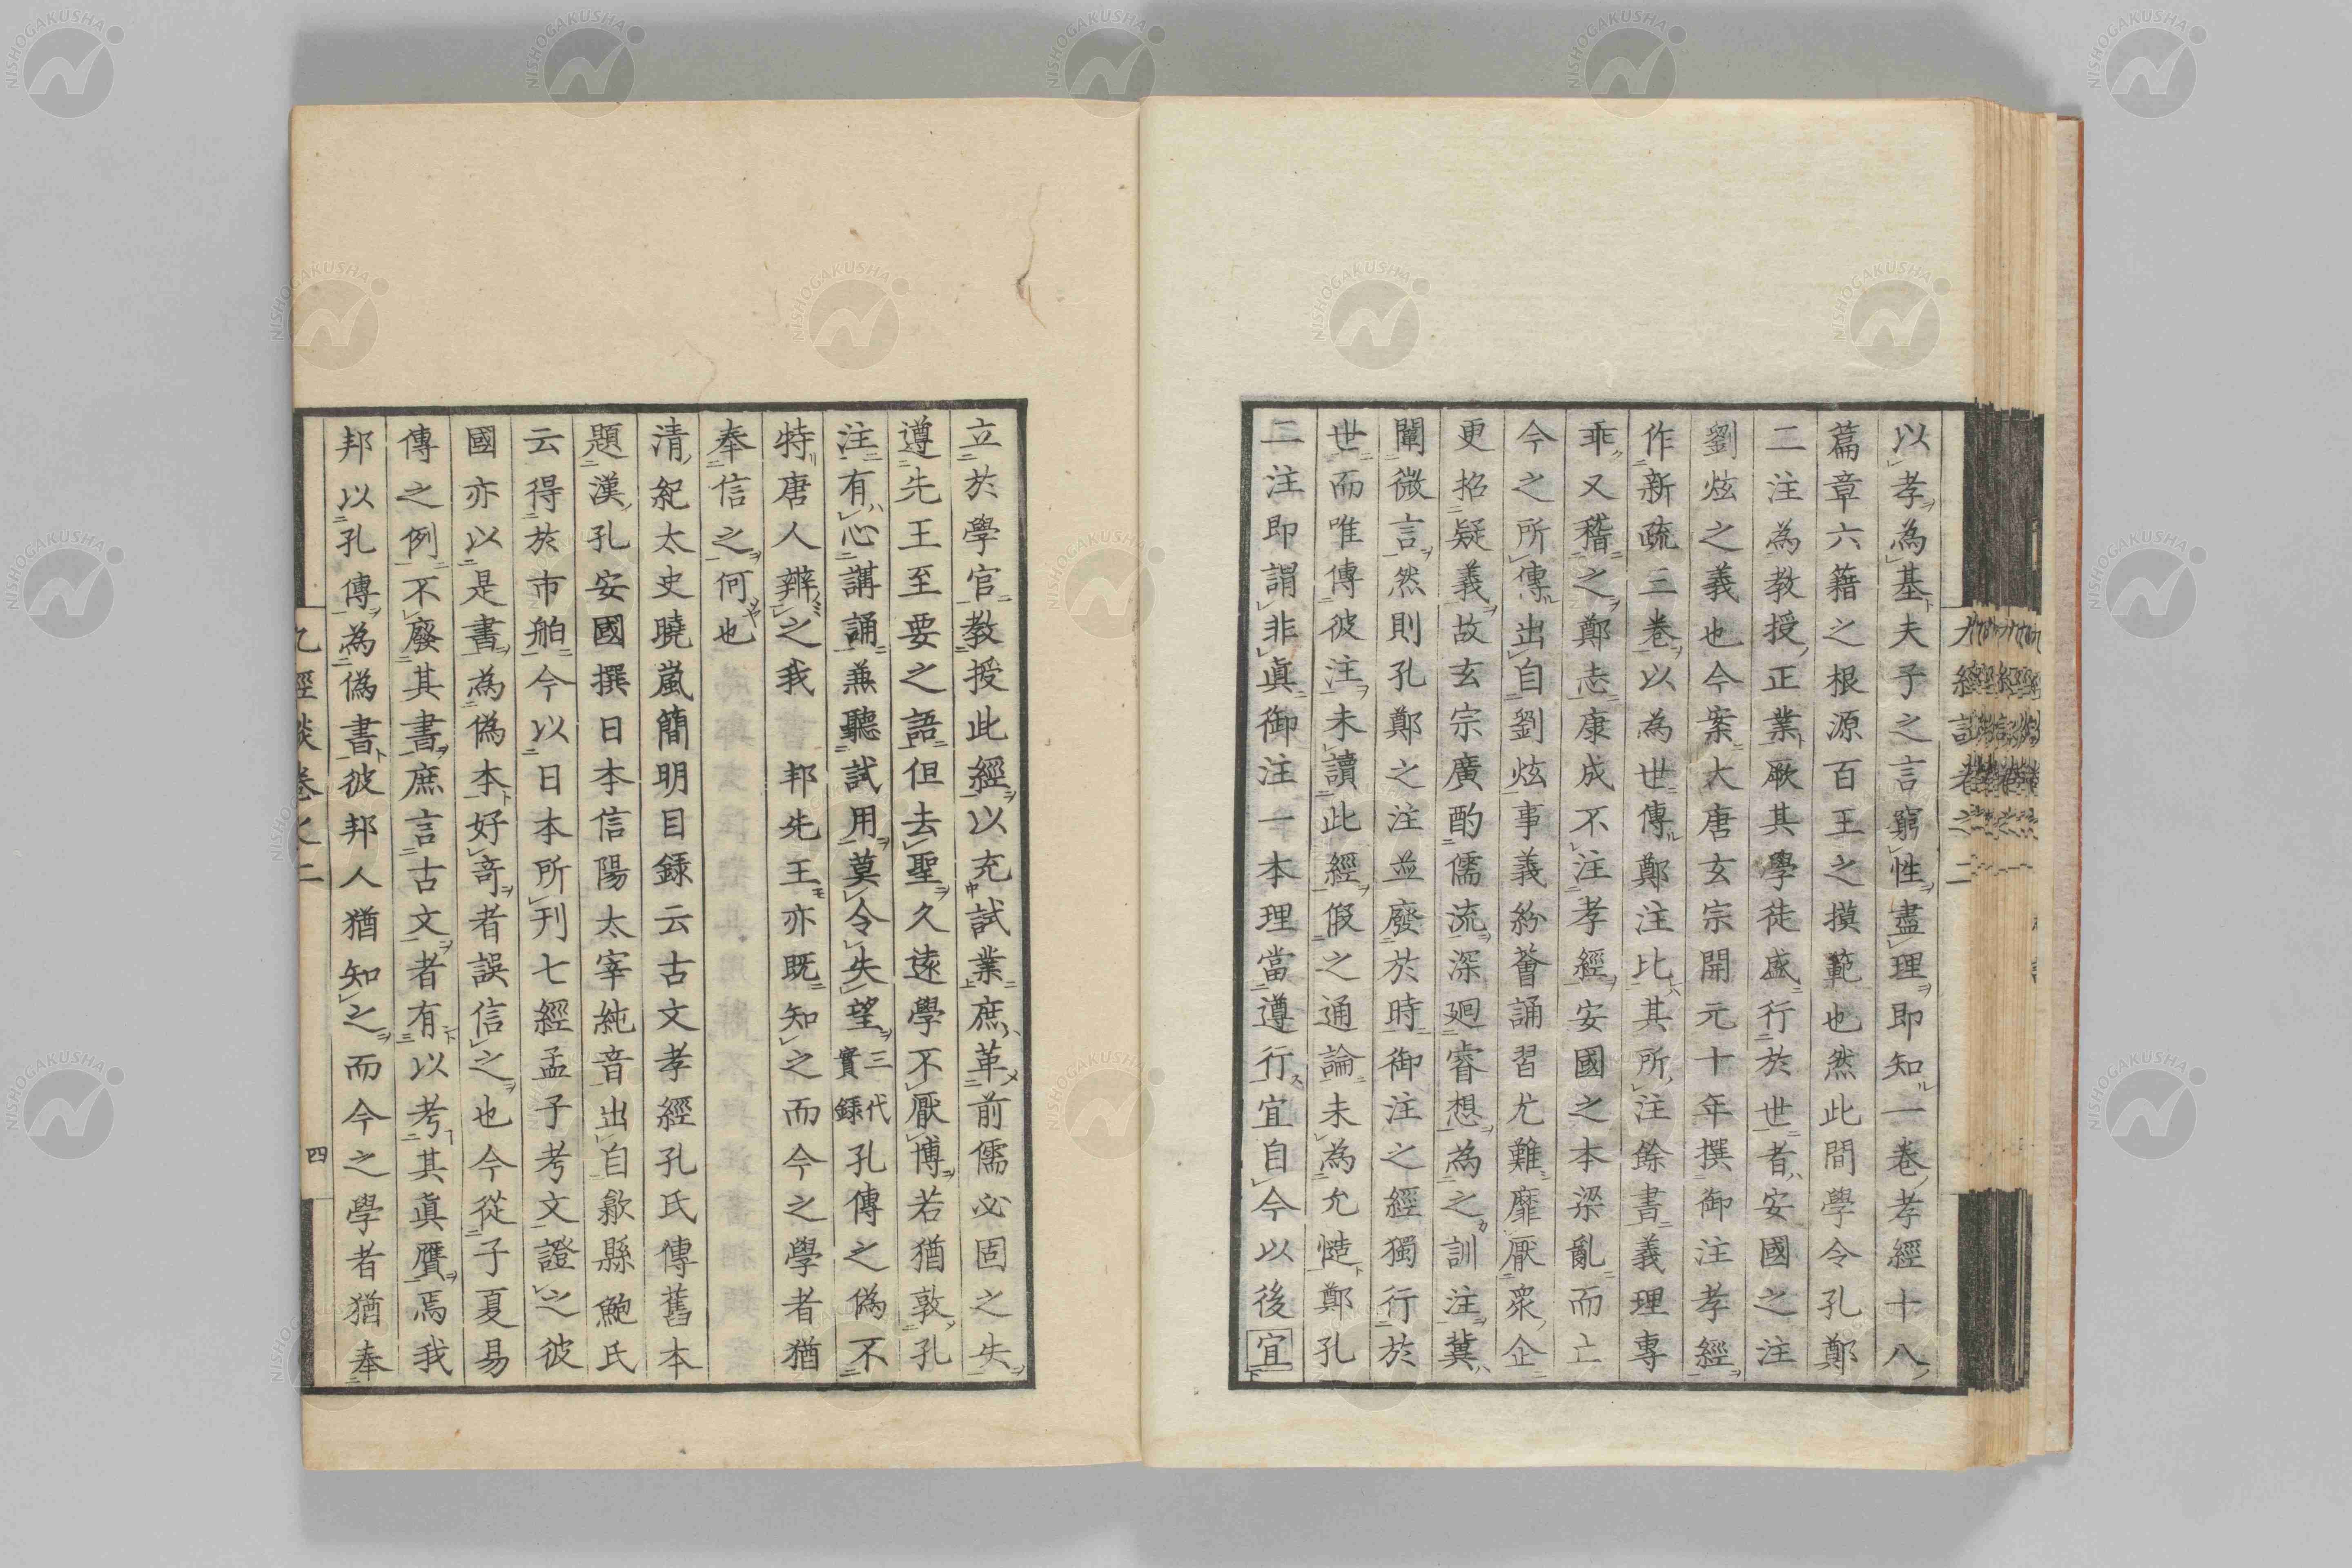 以孝為基夫子之言窮性盡理即知一卷孝經十八
篇章六籍之根源百王之摸範也然此間學令孔鄭
二注為教授正業厥其學徒盛行於世者安國之注
劉炫之義也今案大唐玄宗開元十年撰御注孝經
作新疏三卷以為世傳鄭注比其所注餘書義理專
乖又稽之鄭志康成不注孝經安國之本梁亂而亡
今之所傳出自劉炫事義紛薈誦習尤難靡厭衆企
更招疑義故玄宗廣酌儒流深廻睿想為之訓注冀
闡微言然則孔鄭之注並廢於時御注之經獨行於
世而唯傳彼注未讀此經假之通論未為允愜鄭孔
二注即謂非眞御注一本理當遵行宜自今以後宜
立於學官教授此經以充試業庶革前儒必固之失
遵先王至要之語但去聖久遠學不厭博若猶敦孔
注有心講誦兼聽試用莫令失望三代實錄孔傳之偽不
特唐人辨之我邦先王亦既知之而今之學者猶
奉信之何也
清紀太史曉嵐簡明目錄云古文孝經孔氏傳舊本
題漢孔安國撰日本信陽太宰純音出自歙縣鮑氏
云得於市舶今以日本所刊七經孟子考文證之彼
國亦以是書為偽本好奇者誤信之也今從子夏易
傳之例不廢其書庶言古文者有以考其眞贋焉我
邦以孔傳為偽書彼邦人猶知之而今之學者猶奉
九經談卷之二
四
NISHOGAKUSHA